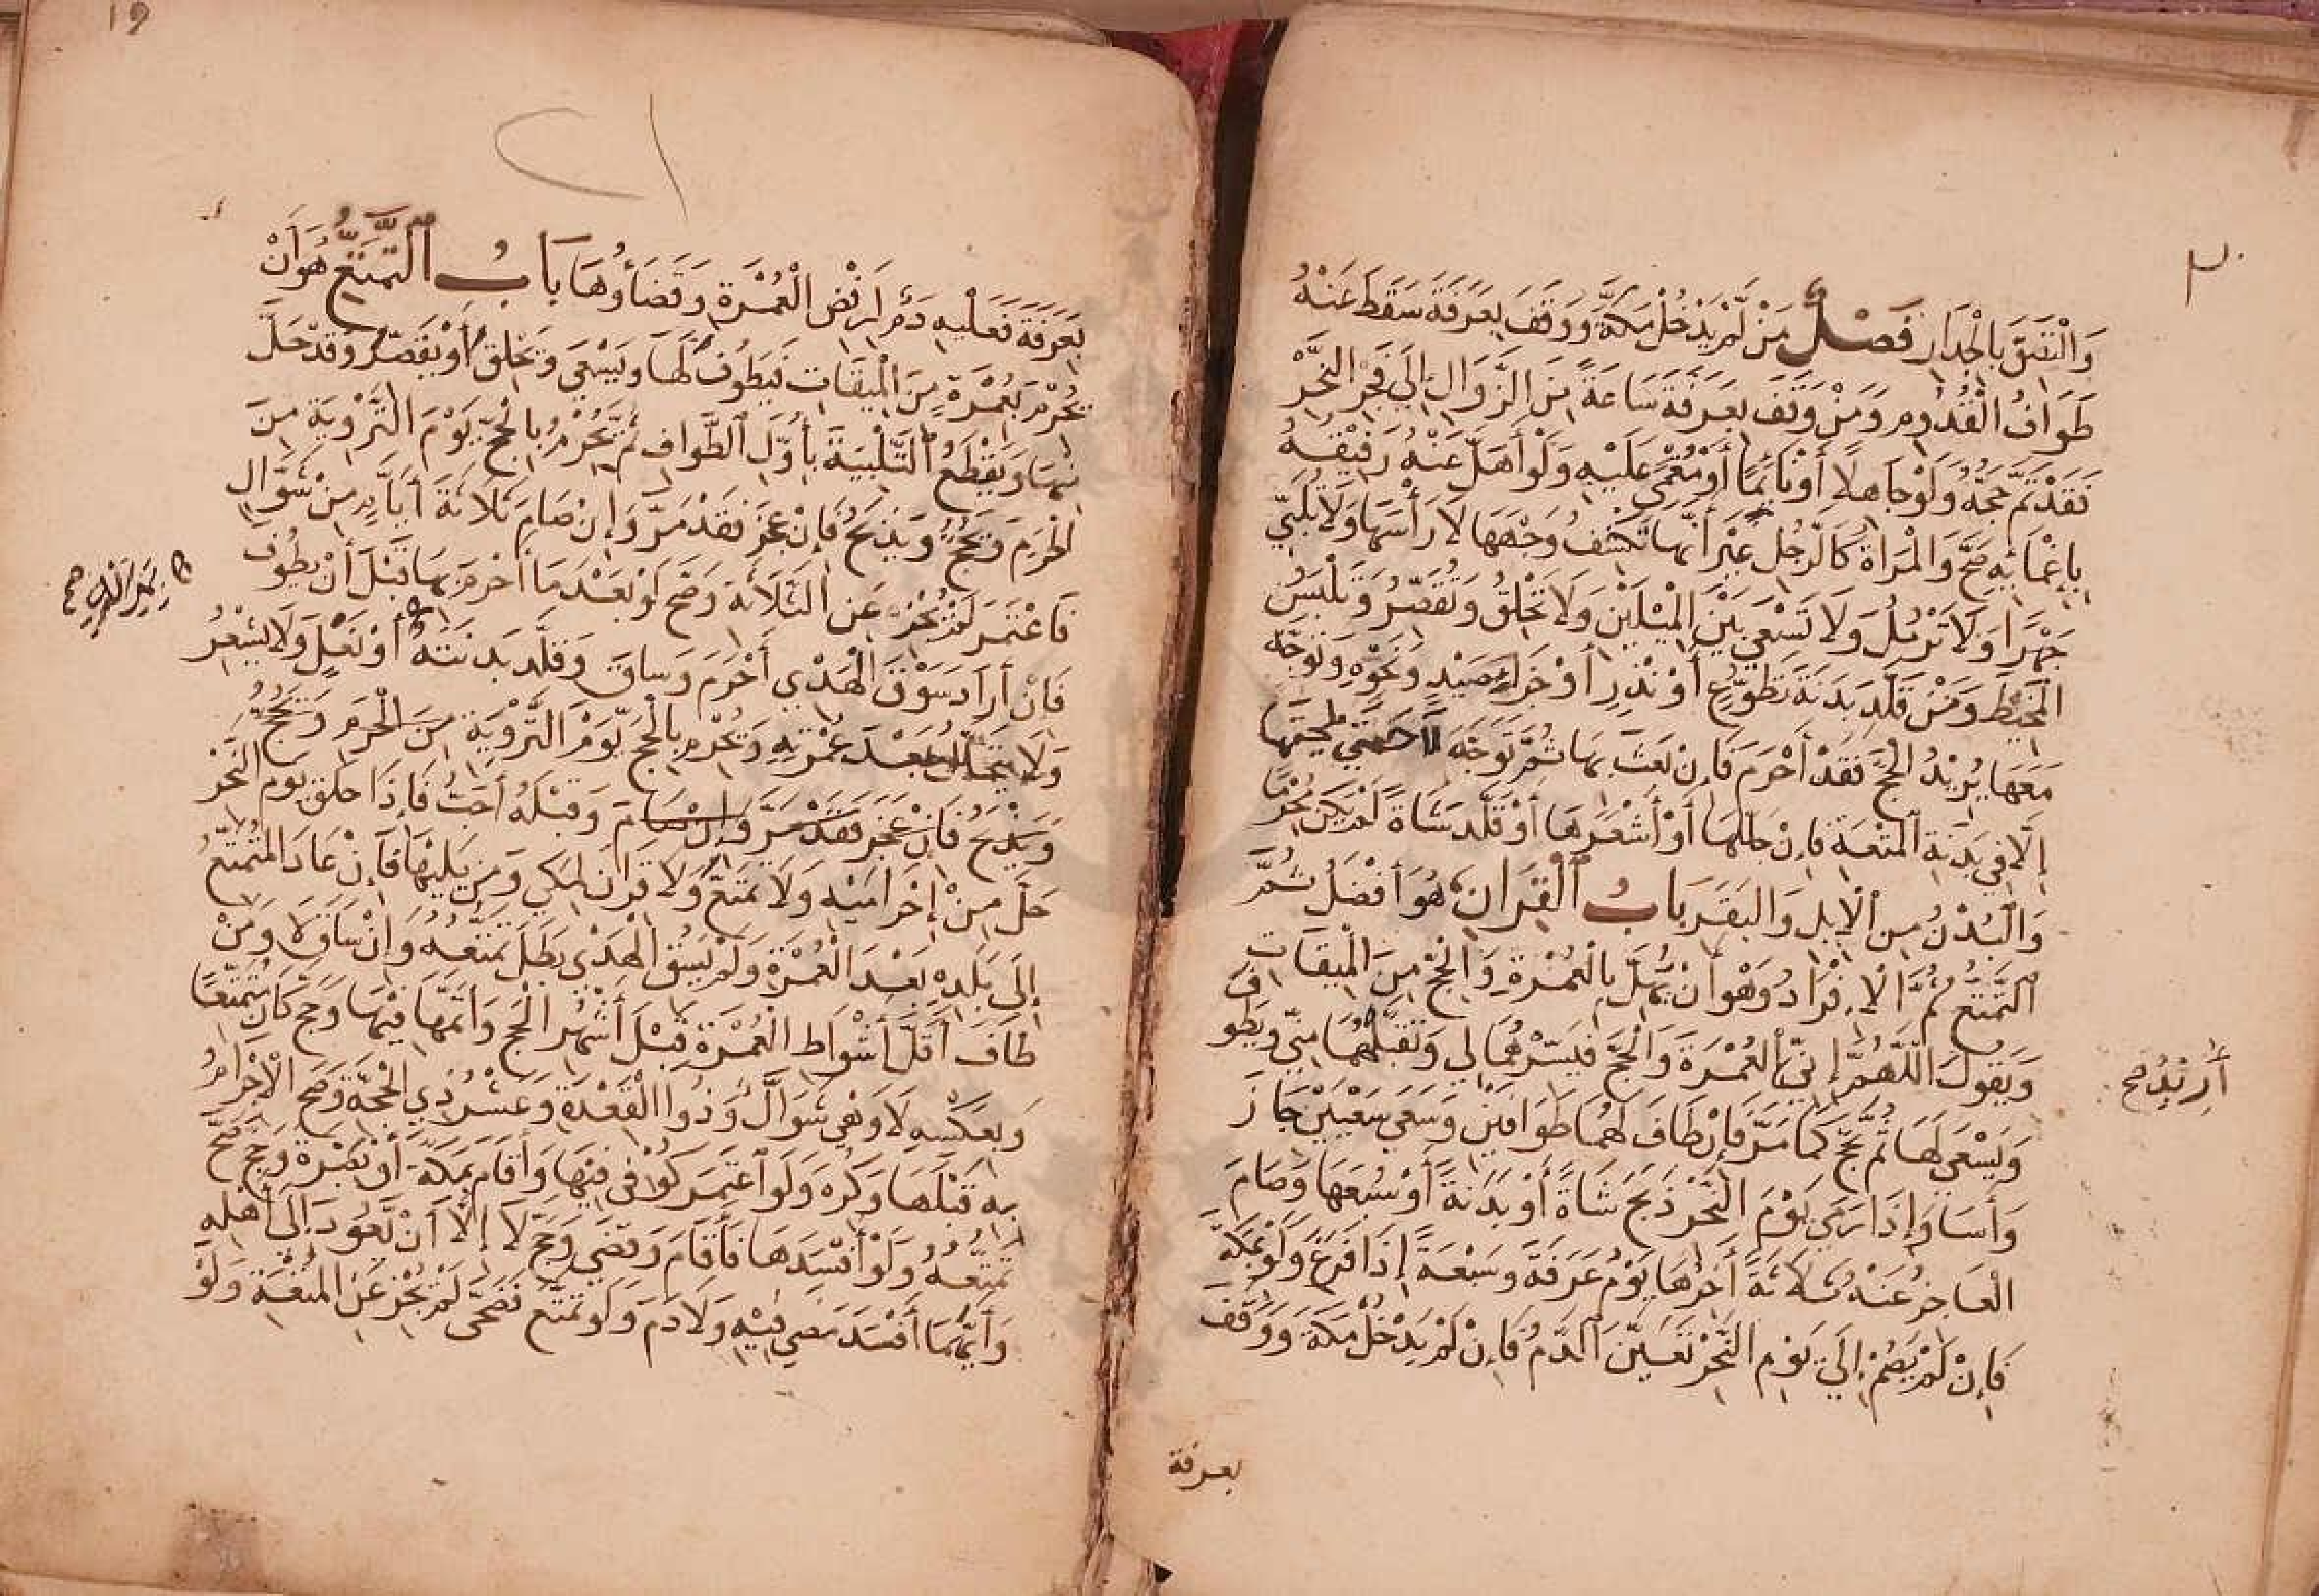 وَالْتَصَقَ بِالْجِدَارِ فَصْلٌ مَنْ لَمْ يَدْخُلْ مَكَّةَ وَوَقَفَ بِعَرَفَةَ سَقَطَ عَنْهُ
طَوَافُ الْقُدُومِ وَمَنْ وَقَفَ بِعَرَفَةَ سَاعَةً مِنَ الزَّوَالِ إِلَى فَجْرِ النَّحْرِ
فَقَدْ تَمَّ حَجُّهُ وَلَوْ جَاهِلًا أَوْ نَائِمًا أَوْ مُغْمًى عَلَيْهِ وَلَوْ أَهَلَّ عَنْهُ رَفِيْقُهُ
بِإِغْمَائِهِ صَحَّ وَالْمَرْأَةُ كَالرَّجُلِ غَيْرَ أَنَّهَا تَكْشِفُ وَجْهَهَا لَا رَأْسَهَا وَلَا تُلَبِّي
جَهْرًا وَلَا تَرْمُلُ وَلَا تَسْعَى بَيْنَ الْمِيْلَيْنِ وَلَا تَحْلِقُ وَتُقَصِّرُ وَتَلْبَسُ
الْمَخِيْطَ وَمَنْ قَلَّدَ بَدَنَةَ تَطَوُّعٍ أَوْ نَذْرٍ أَوْ جَزَاءِ صَيْدٍ وَنَحْوِهِ وَتَوَجَّهَ
مَعَهَا يُرِيْدُ الْحَجَّ فَقَدْ أَحْرَمَ فَإِنْ بَعَثَ بِهَا ثُمَّ تَوَجَّهَ لَا حَتَّى يَلْحَقَهَا
إِلَّا فِي بَدَنَةِ الْمُتْعَةِ فَإِنْ جَلَّلَهَا أَوْ أَشْعَرَهَا أَوْ قَلَّدَ شَاةً لَمْ يَكُنْ مُحْرِمًا
وَالْبُدْنُ مِنَ الْإِبِلِ وَالْبَقَرِ بَابُ الْقِرَانِ هُوَ أَفْضَلُ ثُمَّ
التَّمَتُّعُ ثُمَّ الْإِفْرَادُ وَهُوَ أَنْ يُهِلَّ بِالْعُمْرَةِ وَالْحَجِّ مِنَ الْمِيْقَاتِ
وَيَقُولَ اللَّهُمَّ إِنِّي الْعُمْرَةَ وَالْحَجَّ فَيَسِّرْهُمَا لِي وَتَقَبَّلْهُمَا مِنِّي وَيَطُوفَ
أُرِيْدُ صح
وَيَسْعَى لَهَا ثُمَّ يَحُجُّ كَمَا مَرَّ فَإِنْ طَافَ لَهُمَا طَوَافَيْنِ وَسَعَى سَعْيَيْنِ جَازَ
وَأَسَا وَإِذَا رَمَى يَوْمَ النَّحْرِ ذَبَحَ شَاةً أَوْ بَدَنَةً أَوْ سُبُعَهَا وَصَامَ
الْعَاجِزُ عَنْهُ ثَلَاثَةً آخِرُهَا يَوْمُ عَرَفَةَ وَسَبْعَةً إِذَا فَرَغَ وَلَوْ بِمَكَّةَ
فَإِنْ لَمْ يَصُمْ إِلَى يَوْمِ النَّحْرِ تَعَيَّنَ الدَّمُ فَإِنْ لَمْ يَدْخُلْ مَكَّةَ وَوَقَفَ
بعرفة
١٩
بِعَرَفَةَ فَعَلَيْهِ دَمٌ لِرَفْضِ الْعُمْرَةِ وَقَضَاؤُهَا بَابُ التَّمَتُّعِ هُوَ أَنْ
يُحْرِمَ بِعُمْرَةٍ مِنَ الْمِيْقَاتِ فَيَطُوفَ لَهَا وَيَسْعَى وَيَحْلِقَ أَوْ يُقَصِّرَ وَقَدْ حَلَّ
مِنْهَا وَيَقْطَعُ التَّلْبِيَةَ بِأَوَّلِ الطَّوَافِ ثُمَّ يُحْرِمُ بِالْحَجِّ يَوْمَ التَّرْوِيَةِ مِنَ
الْحَرَمِ وَيَحُجُّ وَيَذْبَحُ فَإِنْ عَجَزَ فَقَدْ مَرَّ وَإِنْ صَامَ ثَلَاثَةَ أَيَّامٍ مِنْ شَوَّالٍ
فَاعْتَمَرَ لَمْ يُجْزِهِ عَنِ الثَّلَاثَةِ وَصَحَّ لَوْ بَعْدَمَا أَحْرَمَ بِهَا قَبْلَ أَنْ يَطُوفَ
فَإِنْ أَرَادَ سَوْقَ الْهَدْيِ أَحْرَمَ وَسَاقَ وَقَلَّدَ بَدَنَتَهُ أَوْ نَعْلٍ وَلَا يُشْعِرُ
وَلَا يَتَحَلَّلُ بَعْدَ عُمْرَتِهِ وَيُحْرِمُ بِالْحَجِّ يَوْمَ التَّرْوِيَةِ مِنَ الْحَرَمِ وَيَحُجُّ
وَيَذْبَحُ فَإِنْ عَجَزَ فَقَدْ مَرَّ وَإِنْ صَامَ وَقَبْلَهُ أَحَبُّ فَإِذَا حَلَقَ يَوْمَ النَّحْرِ
حَلَّ مِنْ إِحْرَامَيْهِ وَلَا تَمَتُّعَ وَلَا قِرَانَ لِمَكِّيٍّ وَمَنْ يَلِيْهَا فَإِنْ عَادَ الْمُتَمَتِّعُ
إِلَى بَلَدِهِ بَعْدَ الْعُمْرَةِ وَلَمْ يَسُقِ الْهَدْيَ بَطَلَ تَمَتُّعُهُ وَإِنْ سَاقَ لَا وَمَنْ
طَافَ أَقَلَّ أَشْوَاطِ الْعُمْرَةِ قَبْلَ أَشْهُرِ الْحَجِّ وَأَتَمَّهَا فِيْهَا وَحَجَّ كَانَ مُتَمَتِّعًا
وَبِعَكْسِهِ لَا وَهِيَ شَوَّالٌ وَذُوا الْقَعْدَةِ وَعَشْرُ ذِي الْحِجَّةِ وَصَحَّ الْإِحْرَامُ
بِهِ قَبْلَهَا وَكُرِهَ وَلَوِ اعْتَمَرَ كُوْفِيٌّ فِيْهَا وَأَقَامَ بِمَكَّةَ أَوْ بَصْرَةَ وَحَجَّ صَحَّ
تَمَتُّعُهُ وَلَوْ أَفْسَدَهَا فَأَقَامَ وَقَضَى وَحَجَّ لَا إِلَّا أَنْ يَعُودَ إِلَى أَهْلِهِ
وَأَيَّهُمَا أَفْسَدَ مَضَى فِيْهِ وَلَا دَمَ وَلَوْ تَمَتَّعَ فَضَحَّى لَمْ يُجْزِ عَنِ الْمُتْعَةِ وَلَوْ